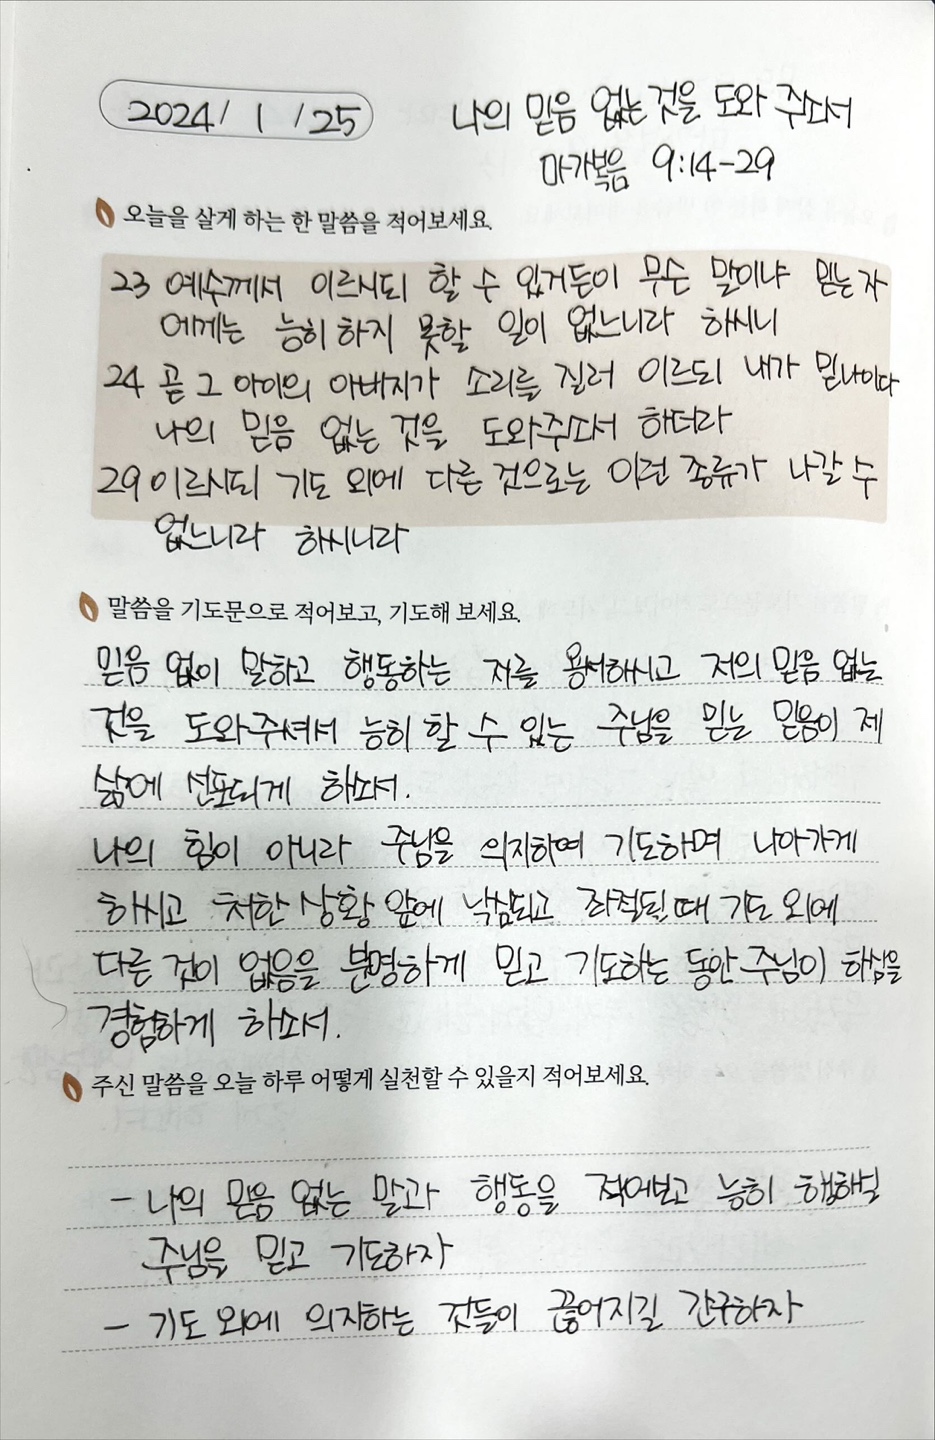 2024/ 1 /25
나의 믿음 없는 것을 도와 주소서
마가복음 9:14-29
오늘을 살게 하는 한 말씀을 적어보세요.
23 예수께서 이르시되 할 수 있거든이 무슨 말이냐 믿는 자
에게는 능히 하지 못할 일이 없느니라 하시니
24 곧 그 아이의 아버지가 소리를 질러 이르되 내가 믿나이다
나의 믿음 없는 것을 도와주소서 하더라
29 이르시되 기도 외에 다른 것으로는 이런 종류가 나갈 수
없느니라 하시니라
말씀을 기도문으로 적어보고, 기도해 보세요.
믿음 없이 말하고 행동하는 저를 용서하시고 저의 믿음 없는
것을 도와주셔서 능히 할 수 있는 주님을 믿는 믿음이 제
삶에 선포되게 하소서.
나의 힘이 아니라 주님을 의지하여 기도하며 나아가게
하시고 처한 상황 앞에 낙심되고 좌절될 때 기도 외에
다른 것이 없음을 분명하게 믿고 기도하는 동안 주님이 하심을
경험하게 하소서.
주신 말씀을 오늘 하루 어떻게 실천할 수 있을지 적어보세요.
- 나의 믿음 없는 말과 행동을 적어보고 능히 행하실
주님을 믿고 기도하자
- 기도 외에 의지하는 것들이 끊어지길 간구하자